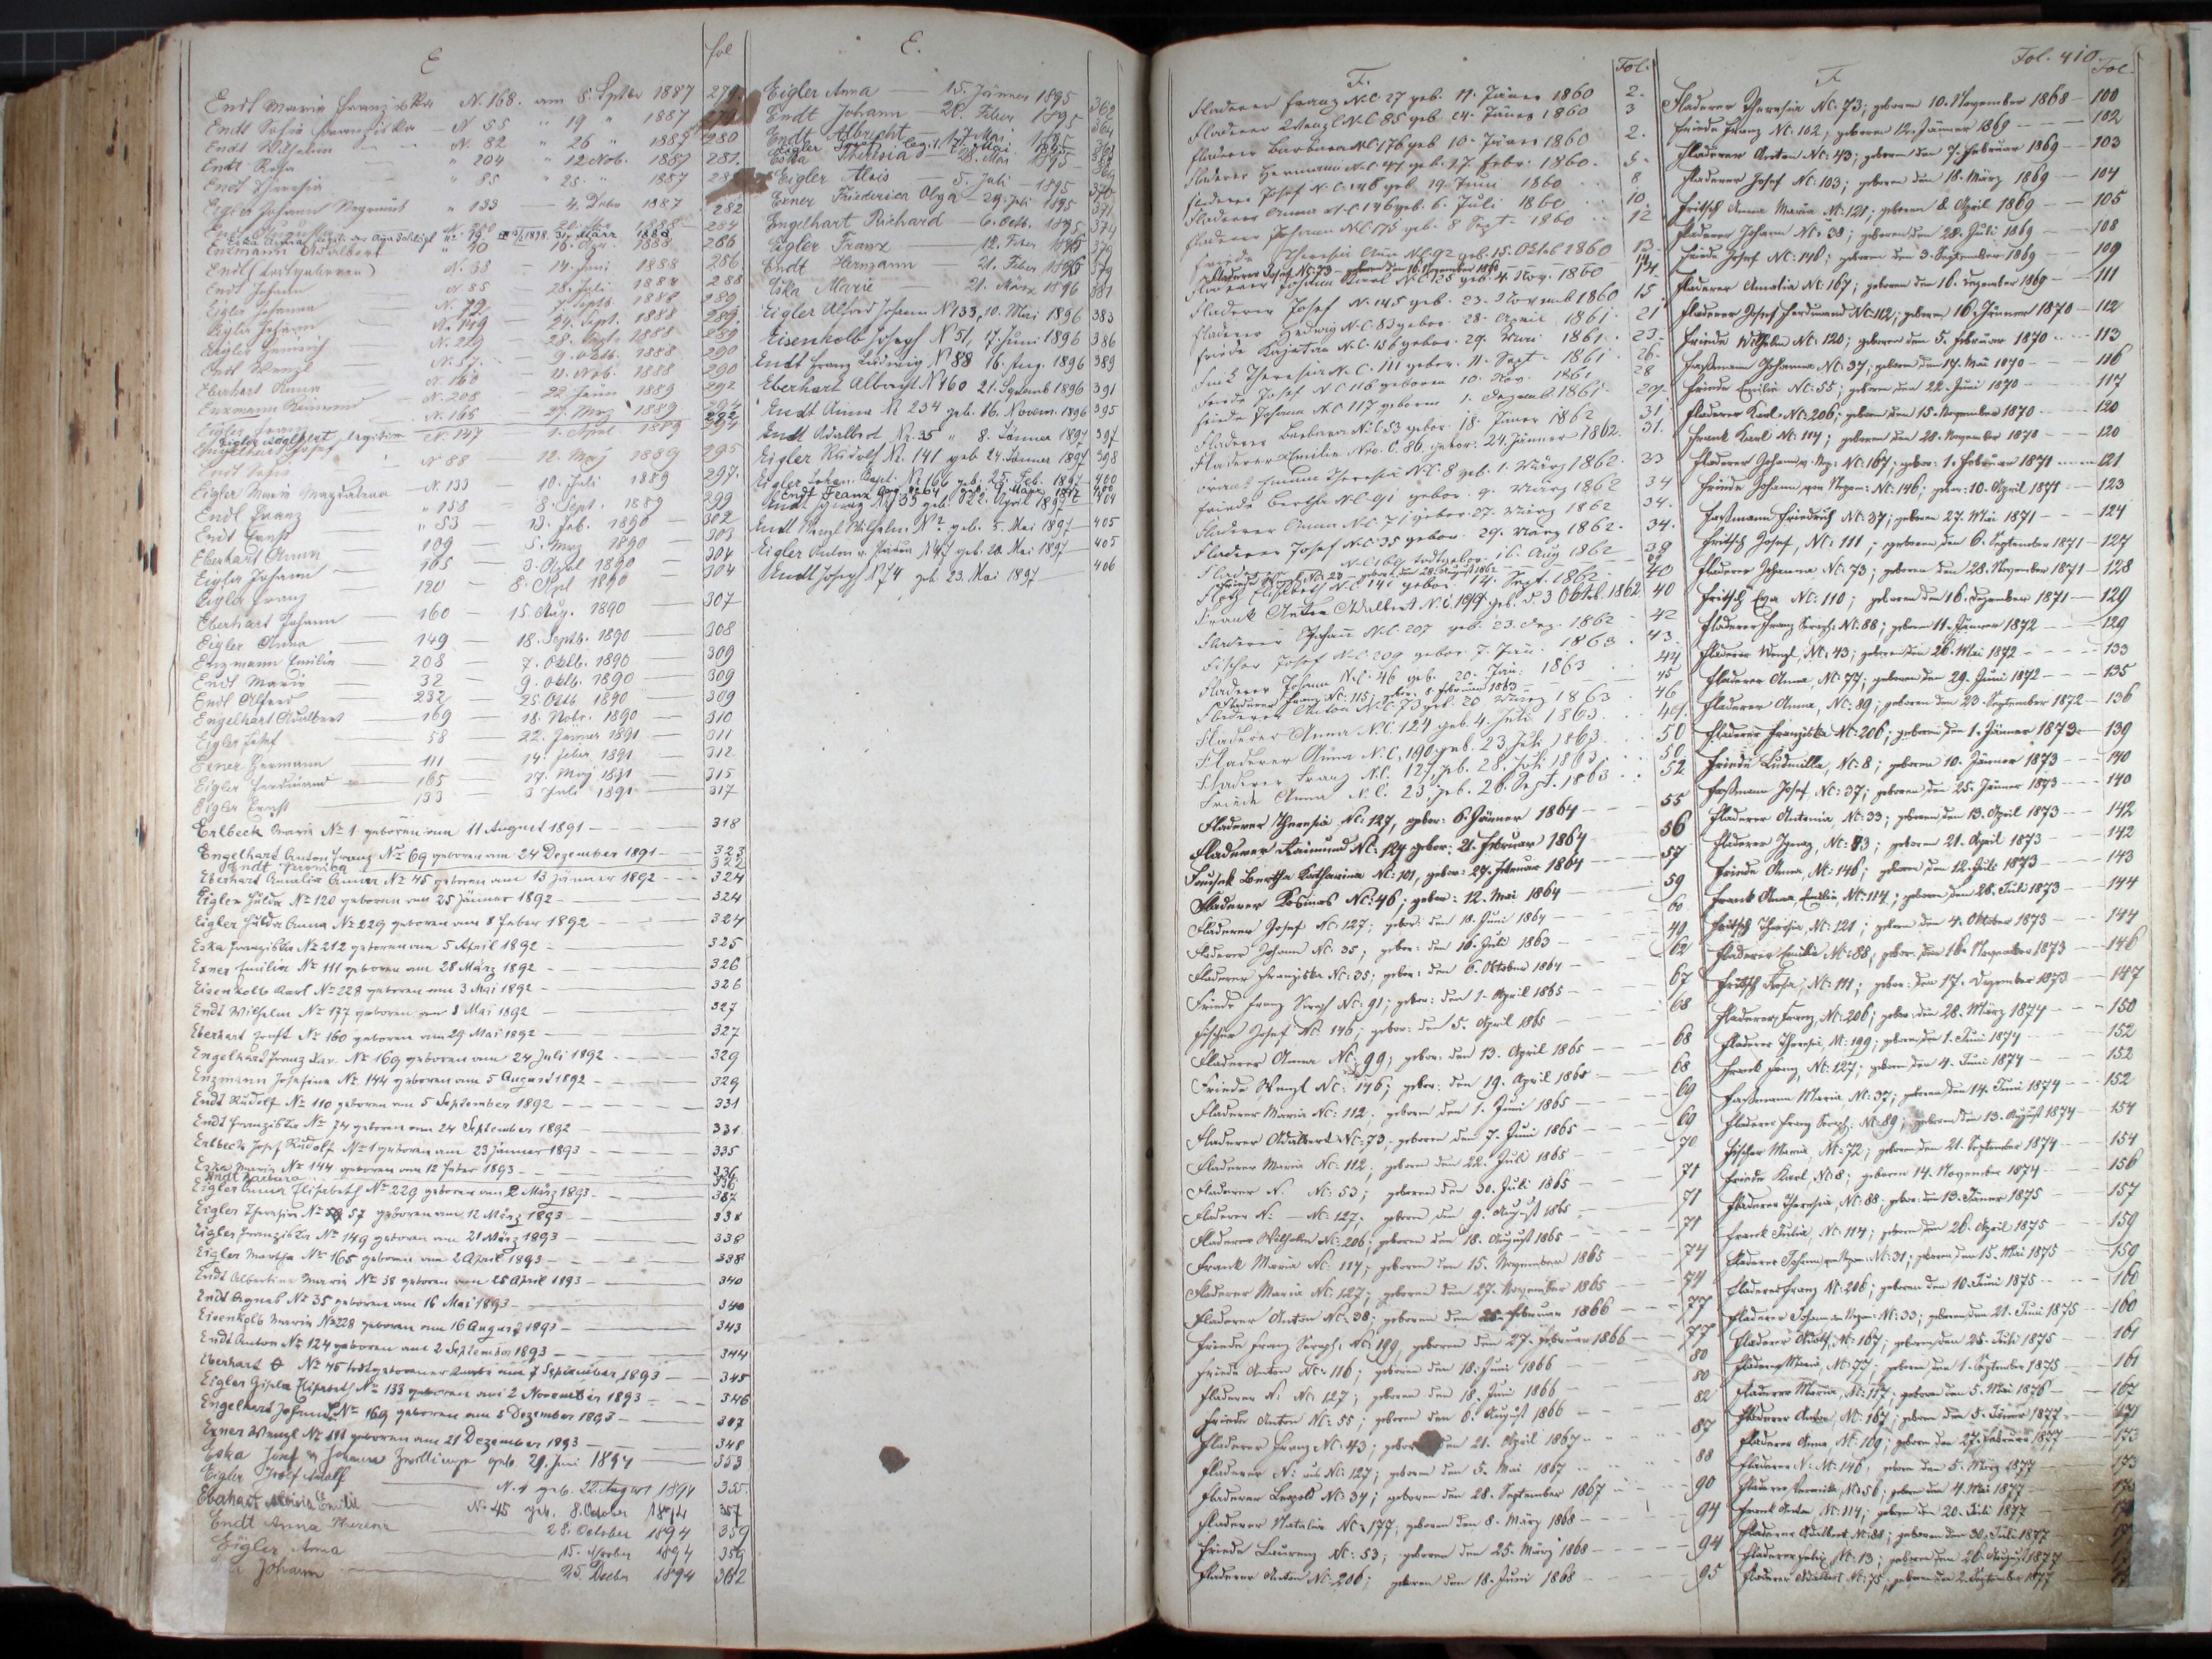 E fol
Endt Maria Franziska N. 168. am 8. Sptbr 1887 279.
Endt Sofia Franziska — N 55 " 19 " 1887
Endt Wilhelm — N. 82 " 26 " 1887 280
Endt Rosa " 204 " 12 Nov. 1887 281.
Endt Theresia " 85 " 25. " 1887
Eigler Johann Nepomuk " 133 — 4. Debr 1887 282
Endt Augusta 1888 284
Enzmann Adalbert " 90 16. Apr. 1888 286
Endt (todtgeboren) N. 38 — 14. Juni 1888 286
Endt Johann N 85 28. Juli 1888 288
Eigler Johanna N. 72 7. Septb. 1888 289
Eigler Johann N. 149 — 24. Sept. 1888 289.
Eigler Heinrich N. 229 — 28. Sept. 1888 289
Endt Wenzl N. 57. 9. Oktb. 1888 290
Eberhart Anna N. 160 — 11. Nob. 1888 290
Enzmann Raimund N. 208 — 22. Jänn 1889 292
Eigler Franz N. 165 — 27. Mrz 1889 294
Engelhart Josef N. 147 1. April 1889 294
Endt N 88 — 12. Maj 1889 295
Eigler Maria Magdalena — N. 133 — 10. Juli 1889 297.
Endt Franz " 158 8. Sept. 1889 299
Endt Ernst " 53 — 13. Feb. 1890 — 302
Eberhart Anna — 109 — 5. Mrz 1890 — 303
Eigler Johann — 165 — 3. April 1890 — 304
Eigler Franz — 120 — 8. Apl 1890 — 304
Eberhart Johann — 160 — 15. Aug. 1890 — 307
Eigler Anna — 149 — 18. Septb. 1890 — 308
Enzmann Emilie — 208 — 7. Oktb. 1890 — 309
Endt Marie — 32 — 9. Oktb. 1890 — 309
Endt Alfred — 232 — 25 Oktb 1890 — 309
Engelhart Adalbert — 169 — 18. Nobr. 1890 — 310
Eigler Josef — 58 — 22. Jänner 1891 — 311
Exner Hermann — 111 — 14. Feber 1891 — 312
Eigler Ferdinand — 165 — 27. Maj 1891 — 315
Eigler Ernst — 133 — 3 Juli 1891 — 317
Erlbeck Maria No 1 geboren am 11 August 1891 — 318
Engelhart Anton Franz No 69 geboren am 24 Dezember 1891 — 323
Endt 322
Eberhart Amalia Anna No 45 geboren am 13 Jänner 1892 — 324
Eigler Hulda No 120 geboren am 25 Jänner 1892 — 324
Eigler Hulda Anna No 229 geboren am 8 Feber 1892 — 324
Eska Franziska No 212 geboren am 5 April 1892 — 325
Exner Emilia No 111 geboren am 28 März 1892 — 326
Eisenkolb Karl No 228 geboren am 3 Mai 1892 — 326
Endt Wilhelm No 177 geboren am 8 Mai 1892 — 327
Eberhart Ernst No 160 geboren am 29 Mai 1892 — 327
Engelhart Franz Xav. No 169 geboren am 24 Juli 1892 — 329
Enzmann Josefine No 144 geboren am 5 August 1892 — 329
Endt Rudolf No 110 geboren am 5 September 1892 — 331
Endt Franziska No 74 geboren am 24 September 1892 — 331
Erlbeck Josef Rudolf No 1 geboren am 23 Jänner 1893 — 335
Eska Maria No 144 geboren am 12 Feber 1893 — 336
Endt Barbara 336
Eigler Anna Elisabeth No 229 geboren am 2 März 1893 — 337
Eigler Theresia No 57 geboren am 12 März 1893 — 338
Eigler Franziska No 149 geboren am 21 März 1893 — 338
Eigler Martha No 165 geboren am 2 April 1893 — 338
Endt Albertine Maria No 38 geboren am 25 April 1893 — 340
Endt Agnes No 35 geboren am 16 Mai 1893 — 340
Eisenkolb Maria No 228 geboren am 16 August 1893 — 343
Endt Anton No 124 geboren am 2 September 1893 — 344
Eberhart No 45 todtgeborener Knabe am 7 September 1893 — 345
Eigler Gisela Elisabeth No 133 geboren am 2 November 1893 — 346
Engelhart Johann No 169 geboren am 8 Dezember 1893 — 347
Exner Wenzl No 111 geboren am 21 Dezember 1893 — 348
Eska Josef & Johanna Zwillinge geb. 29. Juni 1894 — 353
Eigler Josef Adolf N. 1 geb. 22. August 1894 355.
Eberhart Aloisia Emilie N. 45 geb. 8. October 1894 357
Endt Anna Theresia — 28. October 1894 359
Eigler Anna — 15. Novbr 1894 359
Johann — 25 Decbr 1894 362
E.
Eigler Anna — 15. Jänner 1895 362
Endt Johann — 20. Feber 1895 364
Endt Albrecht — 17. Mai 1895
Eska Theresia — 28. Mai 1895 —
Eigler Alois — 5. Juli — 1895 370
Exner Friederica Olga — 29. Juli 1895 371
Engelhart Richard — 6. Octb. 1895 374
Eigler Franz — 12. Feber 1896 379
Endt Hermann 21. Feber 1896 379
Eska Marie — 21. März 1896 381
Eigler Alfred Johann No 133, 10. Mai 1896 383
Eisenkolb Joseph N 51, 7. Juni 1896 386
Endt Franz Ludwig No 88 16. Aug. 1896 389
Eberhart Albrecht No 160 21. Septemb 1896 391
Endt Anna No 234 geb. 16. Novem. 1896 395
Endt Adalbert Nr. 35 " 8. Jänner 1897 397
Eigler Rudolf Nr. 141 geb 24. Jänner 1897 398
Eigler Johan. Bapt. Nr 166 geb. 25. Feb. 1897 — 400
Endt Ignaz Nr 33 geb. 22. April 1897 — 404
Endt Wenzl Wilhelm No 2 geb. 5. Mai 1897 — 405
Eigler Anton v. Padua N 47 geb. 20. Mai 1897 — 405
Endt Joseph N 74 geb. 23. Mai 1897 — 406
F. Fol.
Fladerer Franz N.C. 27 geb. 11. Jäner 1860 2.
Fladerer Wenzl N.C. 85 geb. 24. Jäner 1860 3
Fladerer Barbara N.C. 176 geb 10. Jäner 1860 2.
Fladerer Hermann N.C. 47 geb. 17. Febr. 1860. 5.
Fladerer Josef N.C. 148 geb. 19. Juni 1860 8
Fladerer Anna N.C. 146 geb. 6. Juli 1860 10.
Fladerer Johann N.C. 175 geb. 8 Sept. 1860 12
Friede Theresia Anna N.C. 92 geb. 15. Oktob 1860 13.
Fladerer Josef Nc. 73 — geboren den 16. November 1860 14
Fladerer Johann Karl N.C. 125 geb. 4. Nov. 1860 14.
Fladerer Josef N. 145 geb. 23. November 1860 15
Fladerer Hedwig N.C. 83 gebor. 28. April 1861 21
Friede Kajetan N.C. 156 gebor. 29. Mai 1861. 23.
Fink Theresia N.C. 111 gebor. 11. Sept. 1861 26.
Friede Josef N.C. 116 geboren 10. Nov. 1861 28
Friede Johann N.C. 117 geboren 1. Dezemb. 1861. 29.
Fladerer Barbara N.C. 53 gebor. 18. Jäner 1862 31
Fladerer Emilie Nro. C. 86 gebor. 24. Jänner 1862. 31.
Frank Emma Theresia N.C. 8 geb. 1. März 1862. 33
Friede Bertha N.C. 91 gebor. 9. März 1862 34
Fladerer Anna N.C. 71 gebor. 27. März 1862 34.
Fladerer Josef N.C. 35 gebor. 29. März 1862. 34.
Fladerer N.C. 169 todtgebor. 16. Aug 1862 39
Elisabeth N.C. 14 gebor. 14. Sept. 1862. 40
Frank Anton Adalbert N.C. 194 geb. d. 3 Oktob. 1862 40
Fladerer Johann N.C. 207 geb. 23. Dez. 1862 42
Fischer Josef N.C. 204 gebor 7. Jän. 1863 43.
Fladerer Johann N.C. 46 geb. 20. Jän. 1863 44
Fladerer Franz NC. 115; gebor. 8. Februar 1863 45
Fladerer Anton N.C. 73 geb. 20 März 1863. 46
Fladerer Anna N.C. 124 geb. 4. Juli 1863. 49.
Fladerer Anna N.C. 190 geb. 23. Juli 1863. 50
Fladerer Franz N.C. 127, geb. 28. Juli 1863 50.
Friede Anna N.C. 23 geb. 26. Sept. 1863. 52
Fladerer Theresia Nc. 127, gebor: 6. Jänner 1864 55
Fladerer Raimund Nc: 124 gebor: 21. Februar 1864 56
Bertha Katharina Nc. 101, gebor: 29. Februar 1864 57
Fladerer Kosmas Nc: 46; gebor: 12. Mai 1864 59
Fladerer Josef Nc. 127; gebor: den 10. Juni 1864 60
Fladerer Johann Nc. 35; gebor: den 16. Juli 1863 49
Fladerer Franziska Nc: 35; gebor: den 6. Oktober 1864 62
Friede Franz Seraph Nc: 91; gebor: den 1. April 1865 67
Fischer Josef Nc. 146; gebor: den 5. April 1865 68
Fladerer Anna Nc. 99; gebor: den 13. April 1865 68
Friede Wenzl Nc: 146; gebor: den 19. April 1865 68
Fladerer Maria Nc: 112. geboren den 1. Juni 1865 69
Fladerer Adalbert Nc: 73; geboren den 7. Juni 1865 69
Fladerer Maria Nc. 112; geboren den 22. Juli 1865 70
Fladerer N. Nc: 53; geboren den 30. Juli 1865 71
Fladerer N: — Nc: 127. geboren den 9. August 1865 71
Fladerer Wilhelm Nc. 206; geboren den 18. August 1865 71
Frank Maria Nc. 114; geboren den 15. November 1865 74
Fladerer Maria Nc. 127; geboren den 27. November 1865 74
Fladerer Anton Nc. 38; geboren den 25. Februar 1866 77
Friede Franz Seraph: Nc. 199, geboren den 27. Februar 1866 77
Friede Anton Nc. 116; geboren den 10. Juni 1866 80
Fladerer N. Nc. 127; geboren den 18. Juni 1866 80
Friede Anton Nc: 55; geboren den 6. August 1866 82
Fladerer Franz Nc. 43; gebor den 21. April 1867 87
Fladerer N: Nc: 127; geboren den 5. Mai 1867 88
Fladerer Leopold Nc. 34; geboren den 28. September 1867 90
Fladerer Natalia Nc. 177; geboren den 8. März 1868 94
Friede Laurenz Nc: 53; geboren den 25. März 1868 94
Fladerer Anton Nc. 206; geboren den 18. Juni 1868 95
F. Fol. 410. Fol.
Fladerer Theresia Nc. 73; geboren 10. November 1868 — 100
Friede Franz Nc. 102; geboren 12. Jänner 1869 — 102
Fladerer Anton Nc: 43; geboren den 7. Februar 1869 — 103
Fladerer Josef Nc: 103; geboren den 18. März 1869 — 104
Fritsch Anna Maria Nc. 121; geboren 8. April 1869 — 105
Fladerer Johann Nc. 38; geboren den 28. Juli 1869 — 108
Friede Josef Nc. 146; geboren den 3. September 1869 — 109
Fladerer Amalia Nc. 167; geboren den 16. Dezember 1869 — 111
Fladerer Josef Ferdinand Nc. 112; geboren 16. Jänner 1870 — 112
Friede Wilhelm Nc: 120; geboren den 5. Februar 1870 — 113
Faßmann Johanna Nc: 37; geboren den 17. Mai 1870 — 116
Friede Emilie Nc: 55; geboren den 22. Juni 1870 — 117
Fladerer Karl Nc: 206; geboren den 15. November 1870 — 120
Frank Karl Nc: 114; geboren den 28. November 1870 — 120
Fladerer Johann v. Nep. Nc. 167; gebor: 1. Februar 1871 — 121
Friede Johann von Nepom: Nc: 146; gebor: 10. April 1871 — 123
Faßmann Friedrich Nc. 37; geboren 27. Mai 1871 — 124
Fritsch Josef, Nc: 111; geboren den 6. September 1871 — 127
Fladerer Johanna, Nc: 73; geboren den 28. November 1871 — 128
Fritsch Eva Nc: 110; geboren den 16. Dezember 1871 — 129
Fladerer Franz Seraph: Nc: 88; geboren 11. Jänner 1872 — 129
Fladerer Wenzl, Nc: 43; geboren den 26. Mai 1872 — 133
Fladerer Anna, Nc: 77; geboren den 29. Juni 1872 — 135
Fladerer Anna, Nc: 89; geboren den 23. September 1872 — 136
Fladerer Franziska Nc: 206; geboren den 1. Jänner 1873 — 139
Friede Ludmilla, Nc: 8; geboren 10. Jänner 1873 — 140
Faßmann Josef, Nc: 37; geboren den 25. Jänner 1873 — 140
Fladerer Antonia, Nc: 33; geboren den 13. April 1873 — 142
Fladerer Ignaz, Nc: 73; geboren 21. April 1873 — 142
Friede Anna, Nc: 146; geboren den 12. Juli 1873 — 143
Frank Anna Emilie, Nc: 114; geboren den 28. Juli 1873 — 144
Fritsch Theresia, Nc: 121; geboren den 4. Oktober 1873 — 144
Fladerer Emilie Nc: 88; gebor. den 16. November 1873 — 146
Fritsch Rosa, Nc: 111; gebor: den 17. Dezember 1873 — 147
Fladerer Franz, Nc: 206; gebor. den 28. März 1874 — 150
Fladerer Theresia, Nc: 199; geboren den 1. Juni 1874 — 152
Frank Franz, Nc: 127; geboren den 4. Juni 1874 — 152
Faßmann Maria, Nc: 37; geboren den 14. Juni 1874 — 152
Fladerer Franz Seraph: Nc: 89; geboren den 13. August 1874 — 154
Fischer Maria, Nc: 72; geboren den 21. September 1874 — 154
Friede Karl, Nc: 8; geboren 14. November 1874 — 156
Fladerer Theresia, Nc: 88; gebor: den 13. Jänner 1875 — 157
Frank Julia, Nc: 114; geboren den 26. April 1875 — 159
Fladerer Johann von Nepom. Nc: 31; geboren den 15. Mai 1875 — 159
Fladerer Franz Nc: 206; geboren den 10. Juni 1875 — 160
Fladerer Johann von Nepom: Nc: 33; geboren den 21. Juni 1875 — 160
Fladerer Adolf, Nc: 167; geboren den 25. Juli 1875 — 161
Fladerer Maria, Nc: 77; geboren den 1. September 1875 — 161
Fladerer Maria, Nc: 117; geboren den 5. Mai 1876 — 167
Fladerer Anton, Nc: 167; geboren den 5. Jänner 1877 — 171
Fladerer Anna, Nc: 109; geboren den 27. Februar 1877 — 173
Fladerer N. Nc: 146, geboren den 5. März 1877 — 173
Fladerer Veronika, Nc: 56; geboren den 4. Mai 1877
Frank Anton, Nc: 114; geboren den 20. Juli 1877
Fladerer Adalbert Nc: 88; geboren den 30. Juli 1877
Fladerer Felix, Nc: 13; geboren den 26. August 1877
Fladerer Adalbert, Nc: 75; geboren den 2. September 1877